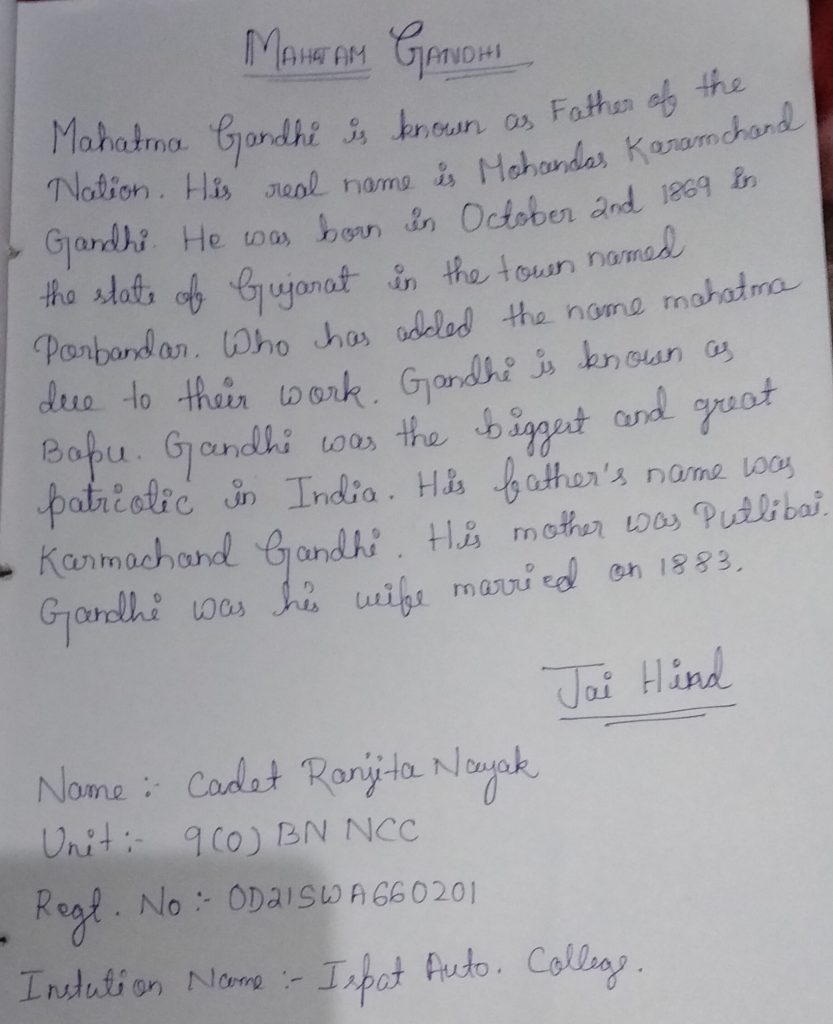 MAHATAM GANDHI
Mahatma Gandhi is known as Father of the
Nation. His real name is Mohandas Karamchand
Gandhi. He was born in October 2nd 1869 in
the state of Gujarat in the town named
Porbandar. Who has added the name mahatma
due to their work. Gandhi is known as
Bapu. Gandhi was the biggest and great
patriotic in India. His father's name was
Karmachand Gandhi. His mother was Putlibai.
Gandhi was his wife married on 1883.
Jai Hind
Name :- Cadet Ranjita Nayak
Unit :- 9(O) BN NCC
Regt. No :- OD21SWA660201
Instution Name :- Ispat Auto. College.